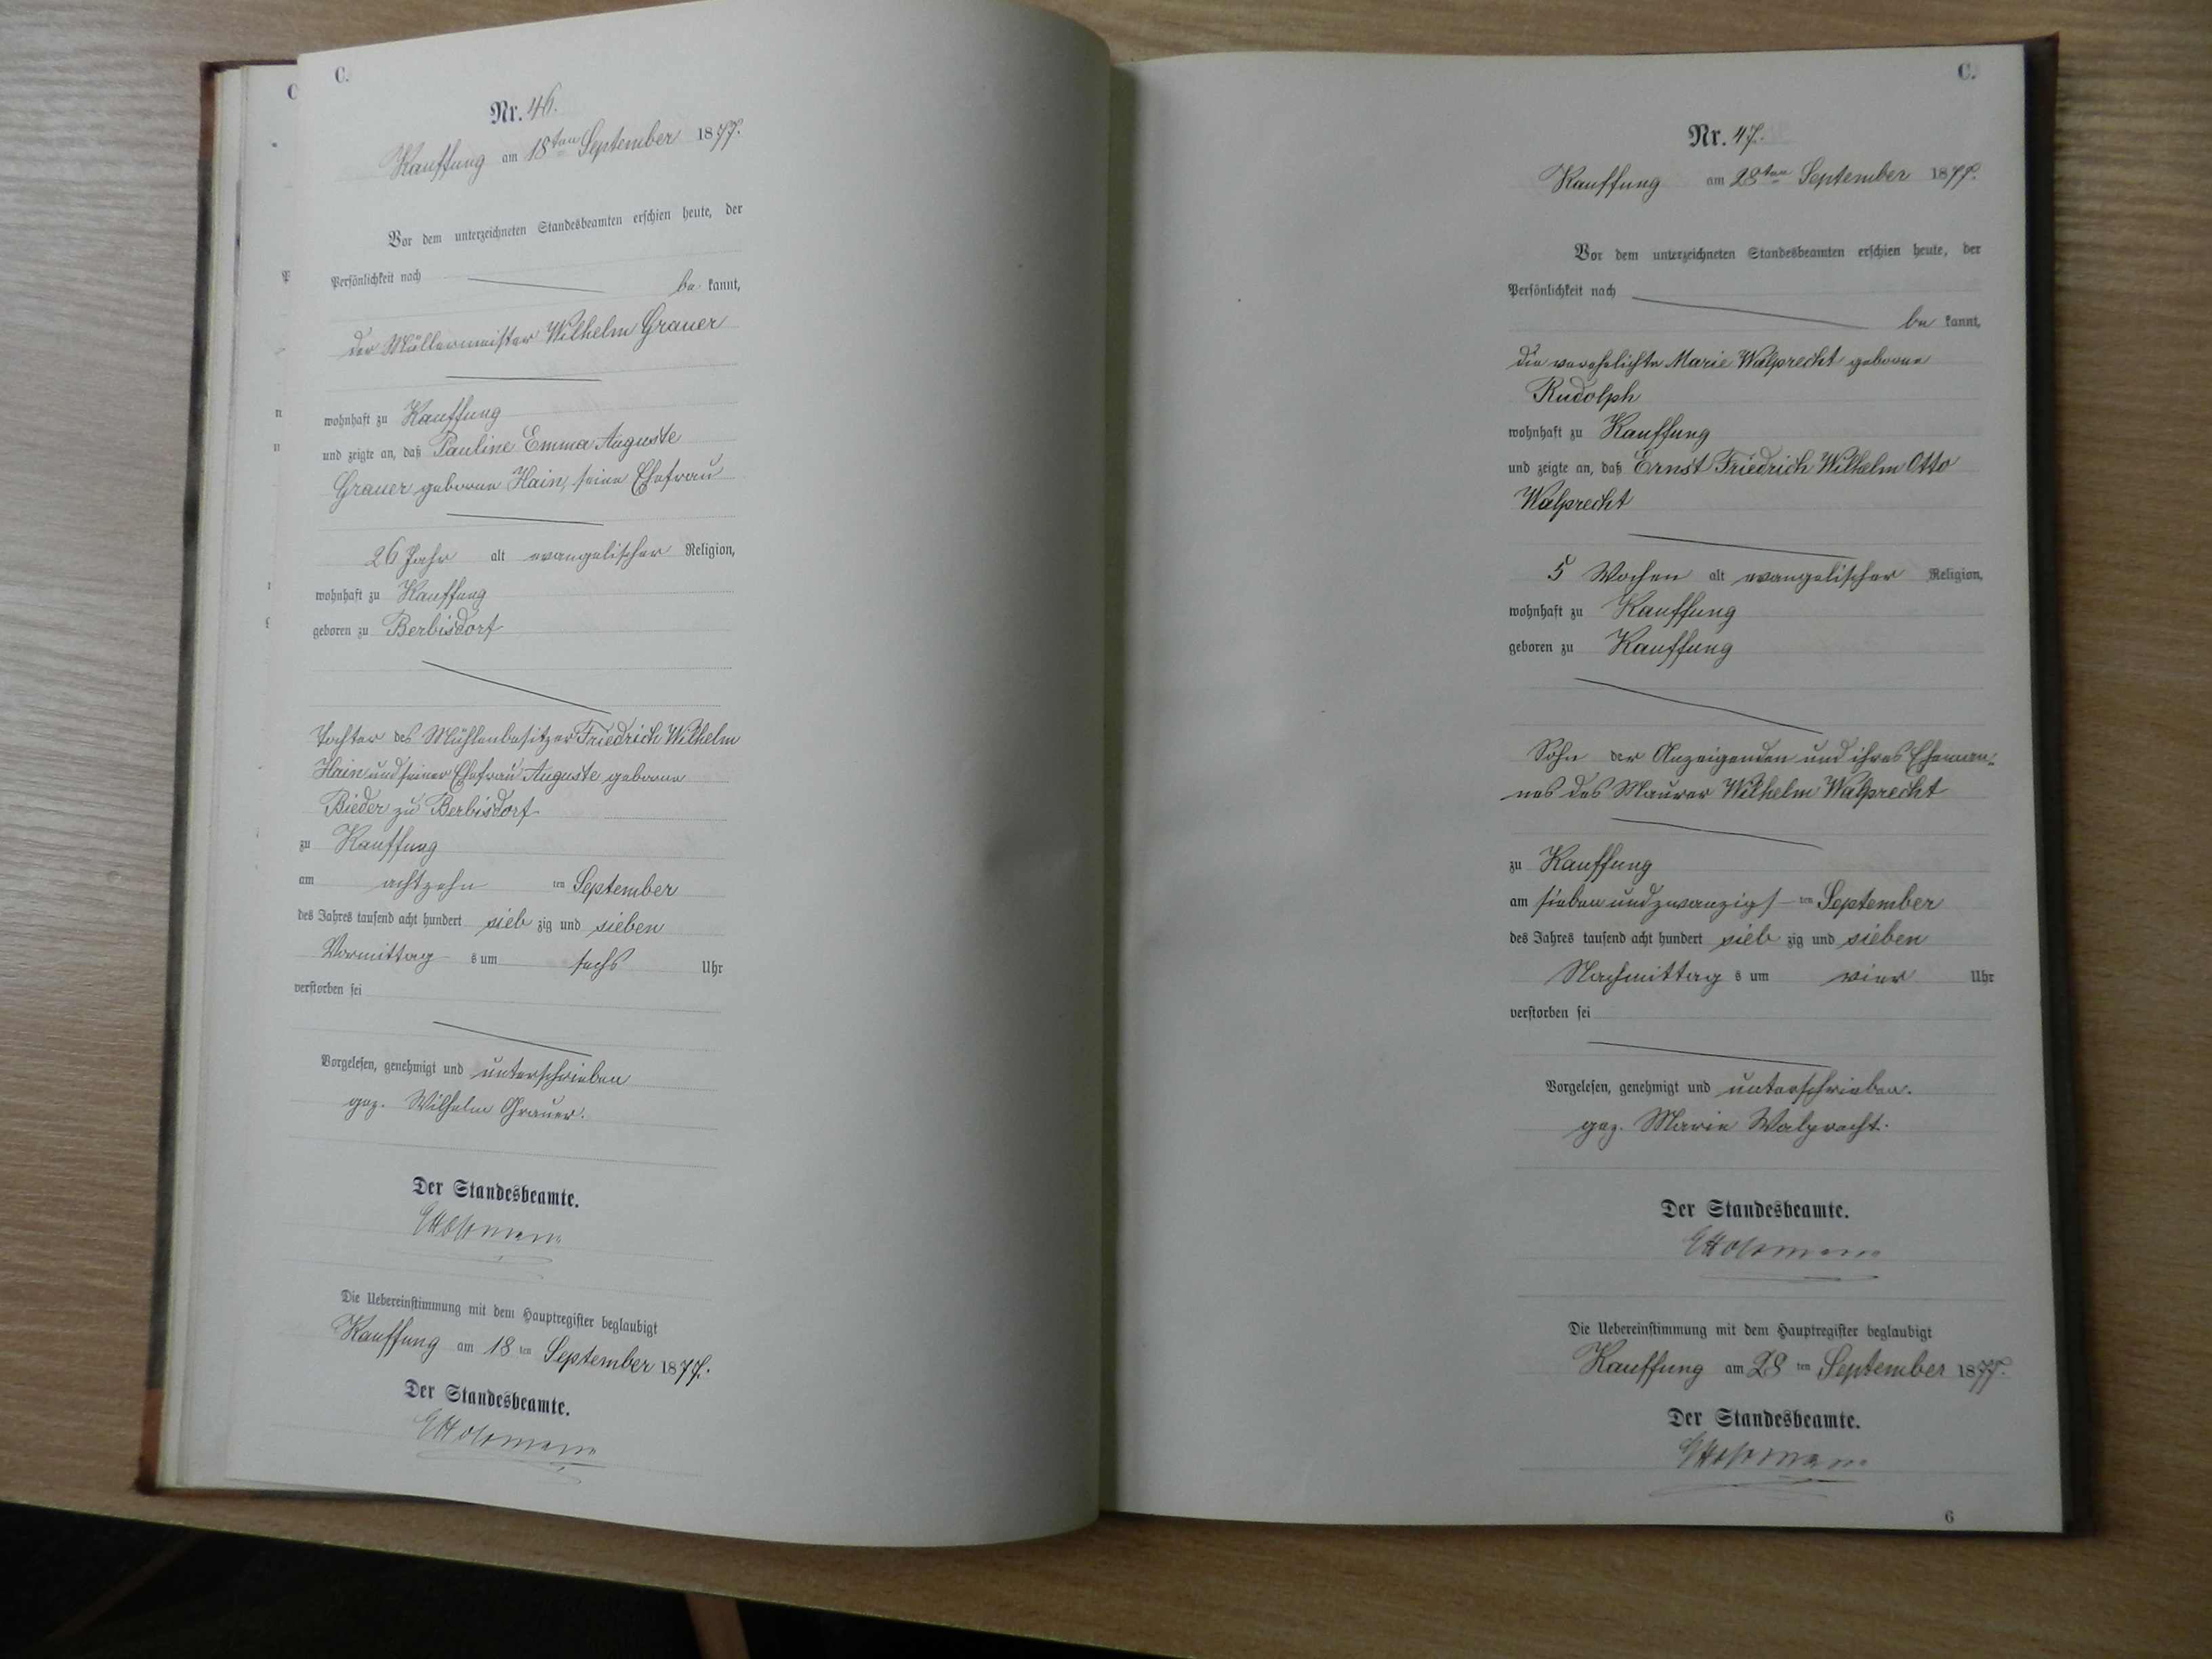 C
C.
Nr. 46.
Kauffung am 18ten September 1877.
Vor dem unterzeichneten Standesbeamten erschien heute, der
Persönlichkeit nach be kannt,
der Müllermeister Wilhelm Grauer
wohnhaft zu Kauffung
und zeigte an, daß Pauline Emma Auguste
Grauer geborne Hain, seine Ehefrau
26 Jahr alt evangelischer Religion,
wohnhaft zu Kauffung
geboren zu Berbisdorf
Tochter des Mühlenbesitzer Friedrich Wilhelm
Hain und seiner Ehefrau Auguste geborne
Bieder zu Berbisdorf
zu Kauffung
am achtzehn ten September
des Jahres tausend acht hundert sieb zig und sieben
Vormittag s um sechs Uhr
verstorben sei
Vorgelesen, genehmigt und unterschrieben
gez. Wilhelm Grauer.
Der Standesbeamte.
Die Uebereinstimmung mit dem Hauptregister beglaubigt
Kauffung am 18 ten September 1877.
Der Standesbeamte.
C.
Nr. 47.
Kauffung am 28ten September 1877.
Vor dem unterzeichneten Standesbeamten erschien heute, der
Persönlichkeit nach
be kannt,
die verehelichte Marie Walprecht geborne
Rudolph
wohnhaft zu Kauffung
und zeigte an, daß Ernst Friedrich Wilhelm Otto
Walprecht
5 Wochen alt evangelischer Religion,
wohnhaft zu Kauffung
geboren zu Kauffung
Sohn der Anzeigenden und ihres Eheman-
nes des Maurer Wilhelm Walprecht
zu Kauffung
am sieben und zwanzigs ten September
des Jahres tausend acht hundert sieb zig und sieben
Nachmittag s um vier Uhr
verstorben sei
Vorgelesen, genehmigt und unterschrieben.
gez. Marie Walprecht.
Der Standesbeamte.
Die Uebereinstimmung mit dem Hauptregister beglaubigt
Kauffung am 28 ten September 1877.
Der Standesbeamte.
6